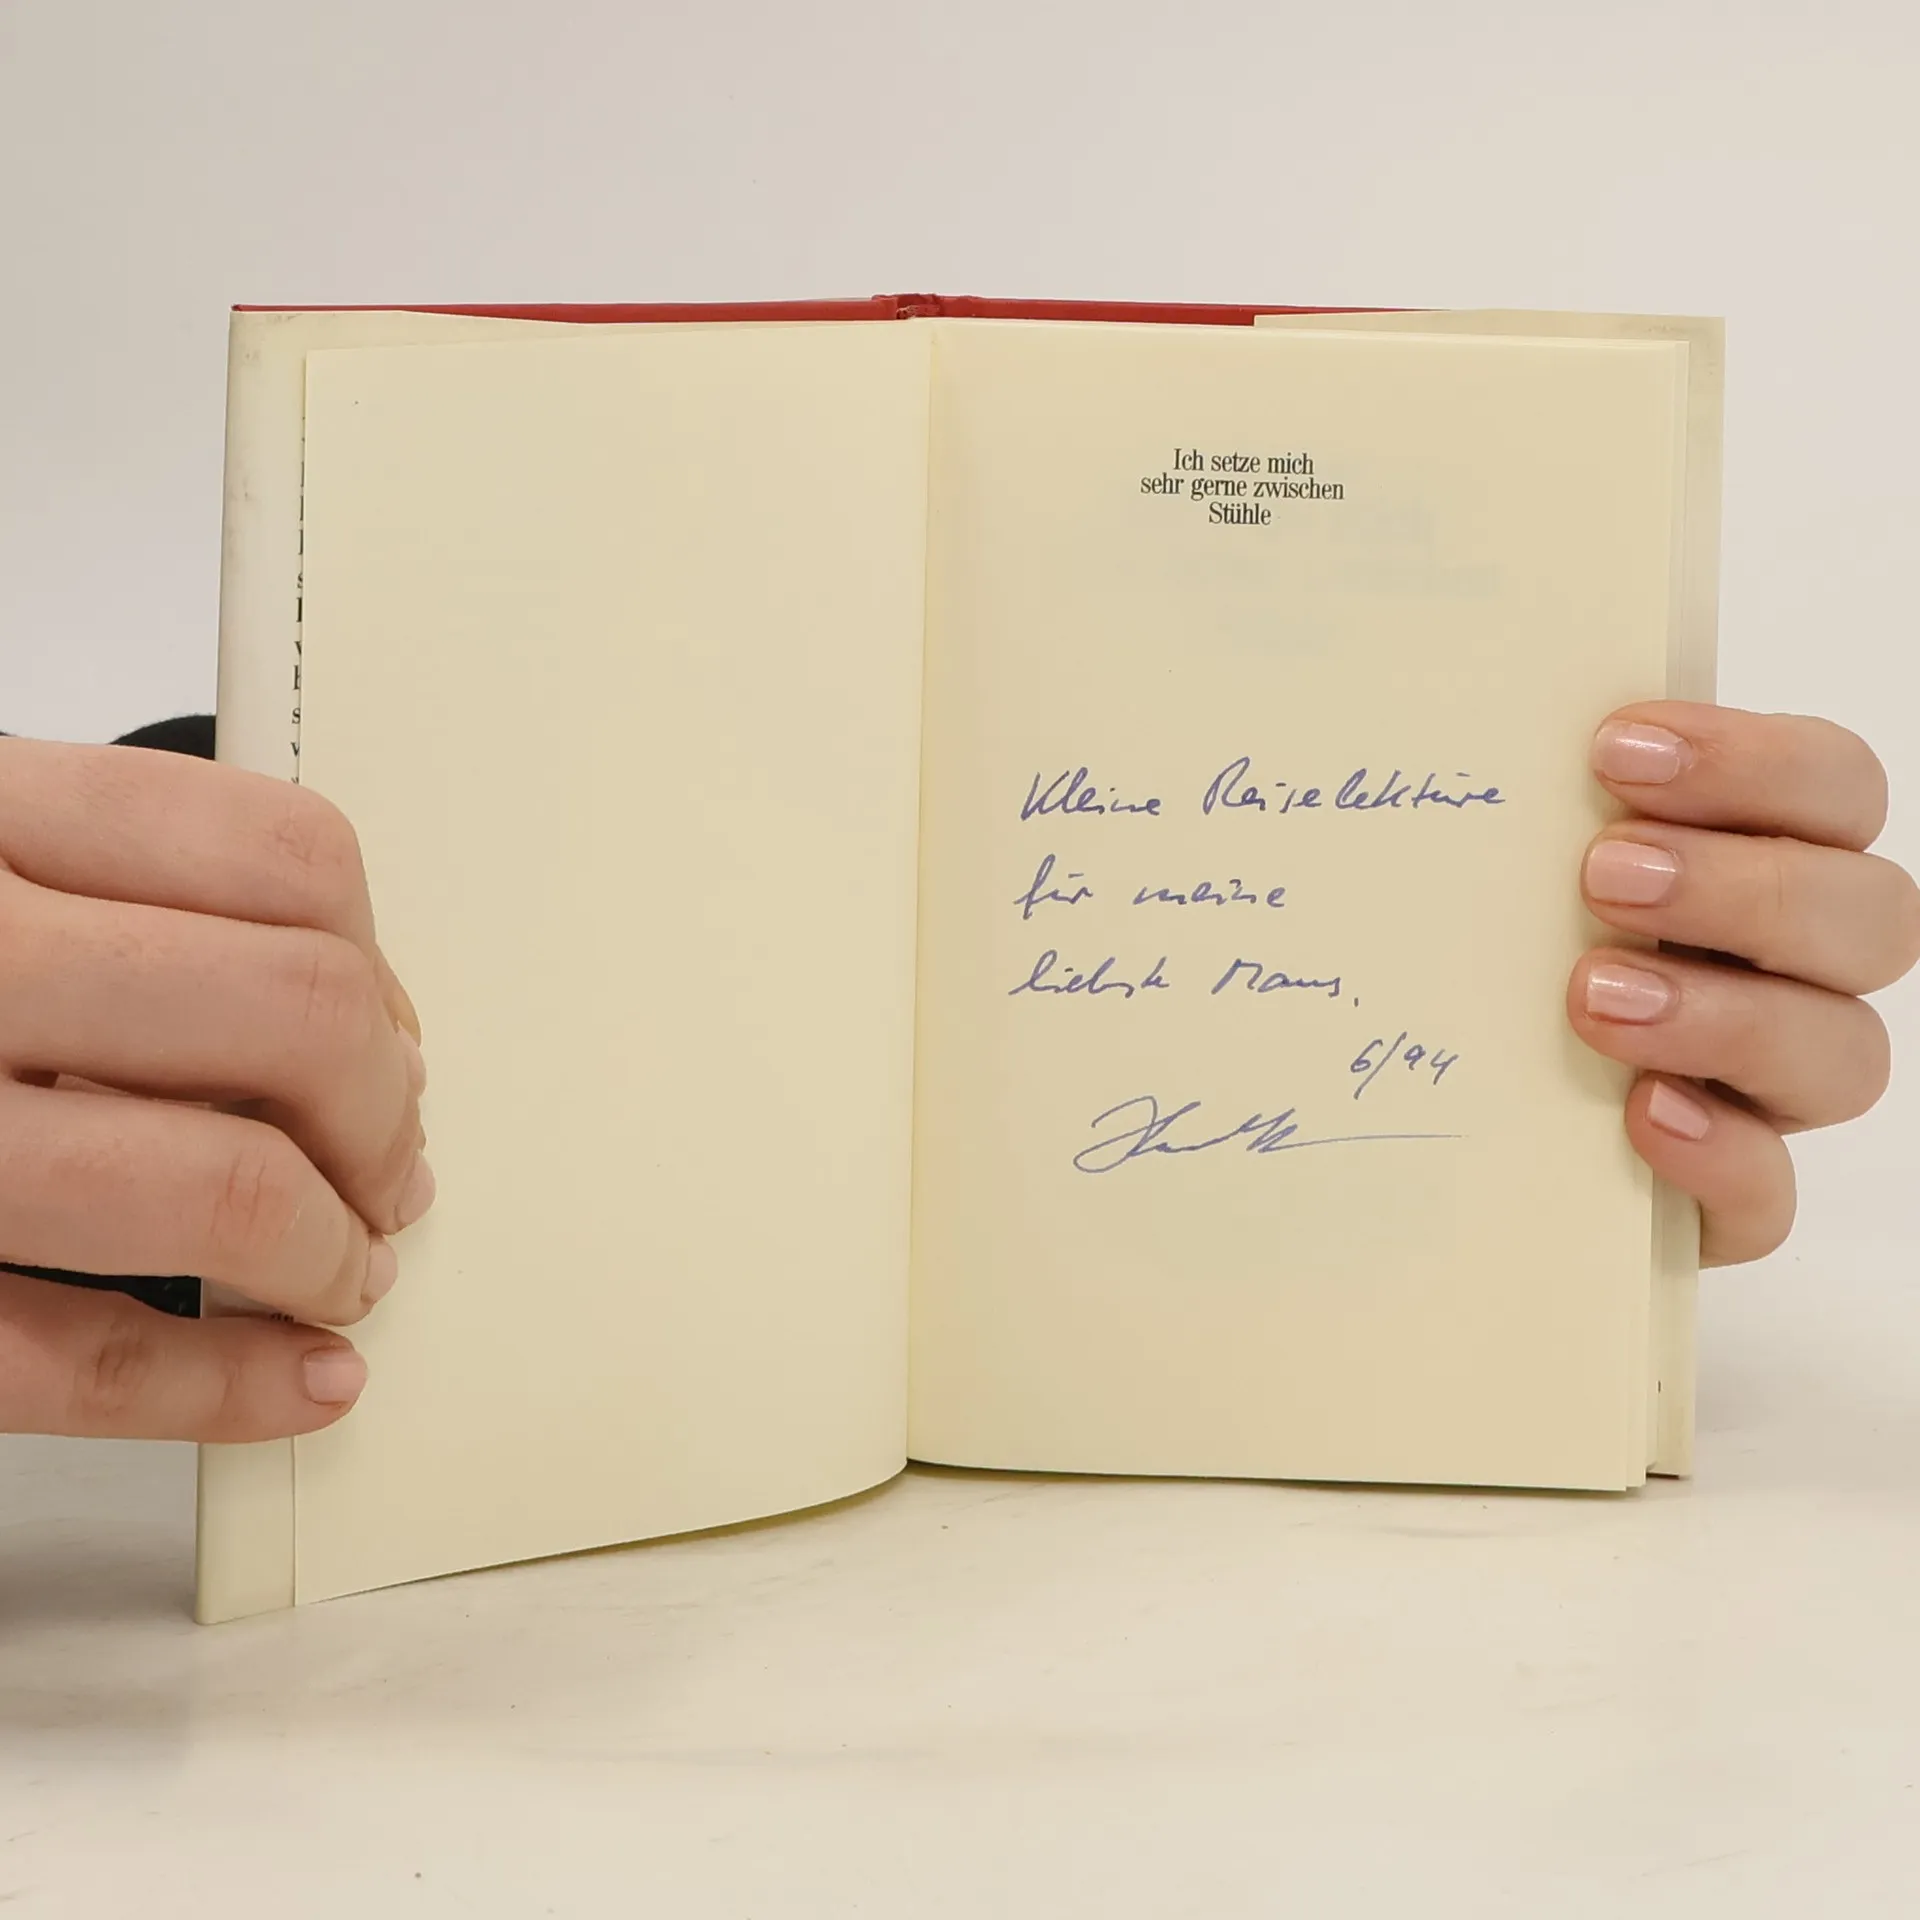 Ich setze mich
sehr gerne zwischen
Stühle
Kleine Reiselektüre
für meine
liebste Maus.
6/94